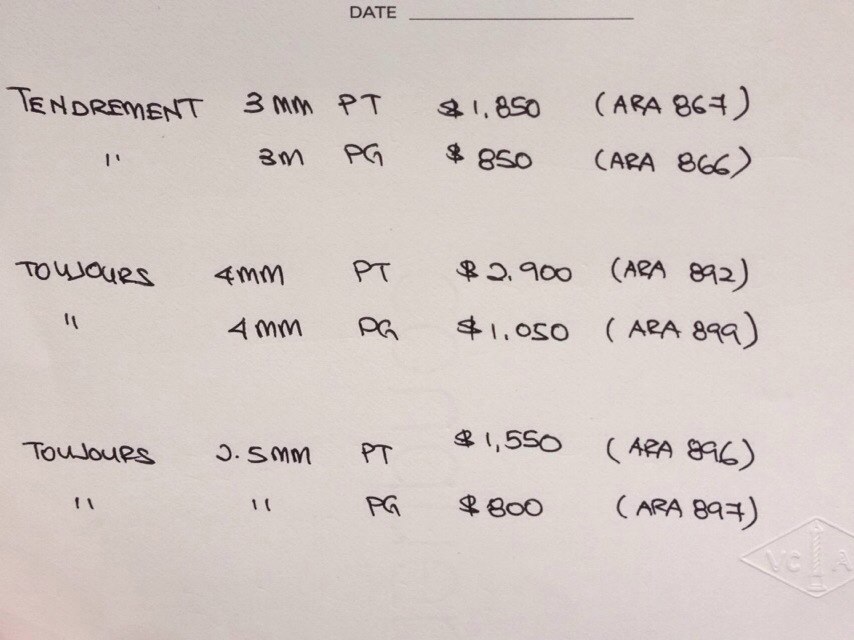 DATE
TENDREMENT 3MM PT $1,850 (ARA 867)
" 3M PG $850 (ARA 866)
TOUJOURS 4MM PT $2,900 (ARA 892)
" 4MM PG $1,050 (ARA 899)
TOUJOURS 2.5MM PT $1,550 (ARA 896)
" " PG $800 (ARA 897)
VC A